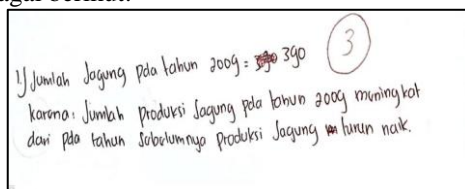 1.) Jumlah Jagung pda tahun 2009 = 390 3
karena: Jumlah produksi Jagung pda tahun 2009 meningkat
dari pda tahun Sebelumnya Produksi Jagung turun naik.